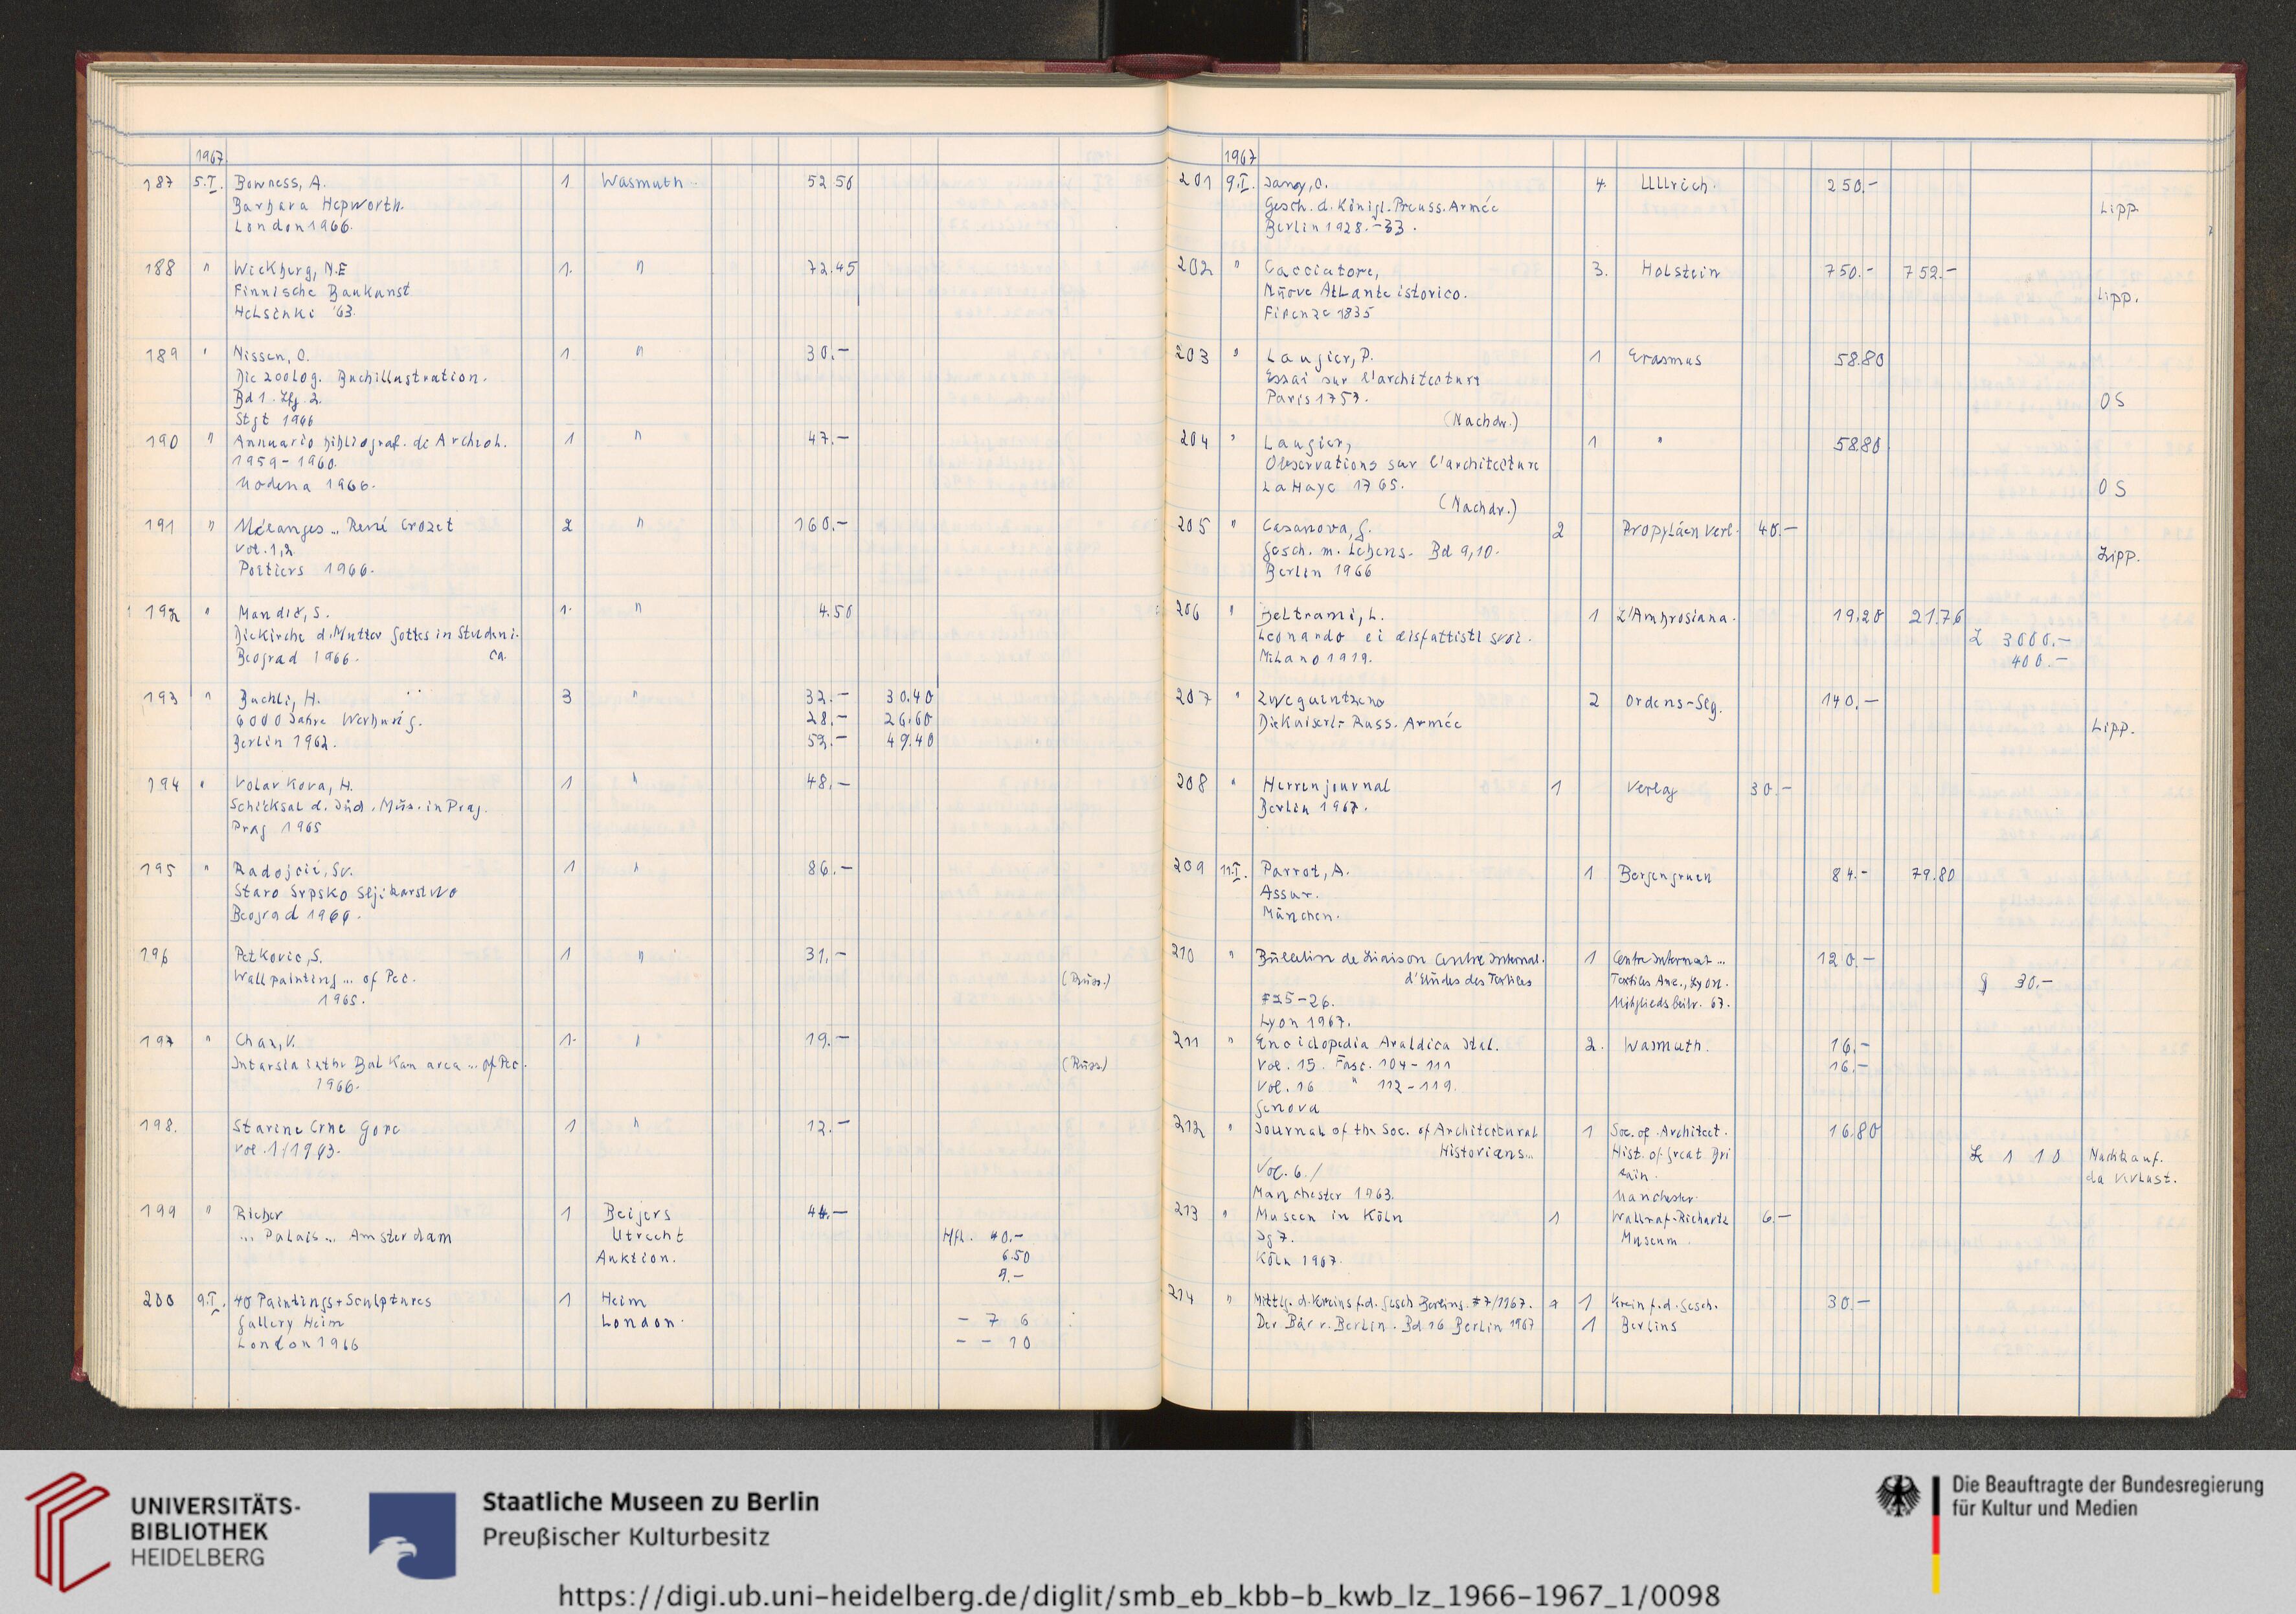 1967
187 5.I. Bowness, A. 1 Wasmuth. 52 50
Barbara Hepworth.
London 1966.
188 " Wickberg, N.E 1. " 72.45
Finnische Baukunst
Helsinki '63.
189 " Nissen, C. 1 " 30.-
Die zoolog. Buchillustration.
Bd 1. Lfg. 2.
Stgt 1966
190 " Annuario bibliograf. di Archeol. 1 " 47.-
1959-1960.
Modena 1966.
191 " Mélanges... René Crozet 2 " 160.-
Vol. 1,2
Poitiers 1966.
192 " Mandić, S. 1. " 4.50
Die Kirche d. Mutter Gottes in Studeni-
Beograd 1966. ca.
193 " Buchli, H. 3 " 32.- 30.40
6000 Jahre Werbung. 28.- 26.60
Berlin 1962. 52.- 49.40
194 " Volavkova, H. 1 " 48.-
Schicksal d. Jüd. Mus. in Prag.
Prag 1965
195 " Radojcić, Sv. 1 " 86.-
Staro Srpsko slikarstvo
Beograd 1966.
196 " Petkovic, S. 1 " 31.-
Wallpainting... of Pec. (Russ.)
1965.
197 " Chan, V. 1. " 19.-
Intarsia in the Balkan area... of Pec. (Russ.)
1966.
198. Starine Crne Gore 1 " 12.-
vol. 1/1963.
199 " Richer 1 Beijers 44.-
... Palais... Amsterdam Utrecht Hfl. 40.-
Auktion. 6.50
9.-
200 9.I. 40 Paintings + Sculptures 1 Heim
Gallery Heim London. - 7 6
London 1966 - - 10
1967
201 9.I. Jany, C. 4. Ullrich. 250.-
Gesch. d. Königl. Preuss. Armée Lipp.
Berlin 1928.-33.
202 " Cacciatore, 3. Holstein 750.- 752.-
Nuovo Atlante istorico. Lipp.
Firenze 1835
203 " Laugier, P. 1 Erasmus 58.80
Essai sur l'architecture
Paris 1753. OS
(Nachdr.)
204 " Laugier, 1 " 58.80
Observations sur l'architecture
La Haye 1765. OS
(Nachdr.)
205 " Casanova, G. 2 Propyläen Verl. 40.-
Gesch. m. Lebens. Bd 9,10. Lipp.
Berlin 1966
206 " Beltrami, L. 1 L'Ambrosiana. 19.28 21.76
Leonardo e i disfattisti suoi. L 3000.-
Milano 1919. 400.-
207 " Zweguintzow 2 Ordens-Slg. 140.-
Die Kaiserl. Russ. Armée Lipp.
208 " Herrenjournal 1 Verlag 30.-
Berlin 1967.
209 11.I. Parrot, A. 1 Bergengruen 84.- 79.80
Assur.
München.
210 " Bulletin de Liaison Centre Internat. 1 Centre Internat... 120.-
d'Etudes des Textiles Textiles Anc., Lyon. 30.-
25-26. Mitgliedsbeitr. 67.
Lyon 1967.
211 " Enciclopedia Araldica Ital. 2. Wasmuth. 16.-
Vol. 15. Fasc. 104-111 16.-
Vol. 16 " 112-119.
Genova
212 " Journal of the Soc. of Architectural 1 Soc. of Architect. 16.80
Historians... Hist. of Great Bri £ 1 10 Nachkauf.
Vol. 6./ tain. da Verlust.
Manchester 1963. Manchester.
213 " Museen in Köln 1 Wallraf-Richartz 6.-
Jg 7. Museum.
Köln 1967.
214 " Mittlg. d. Vereins f. d. Gesch Berlins. #7/1967. 1 Verein f. d. Gesch. 30.-
Der Bär v. Berlin. Bd 16 Berlin 1967 1 Berlins
UNIVERSITÄTS-
BIBLIOTHEK
HEIDELBERG
Staatliche Museen zu Berlin
Preußischer Kulturbesitz
Die Beauftragte der Bundesregierung
für Kultur und Medien
https://digi.ub.uni-heidelberg.de/diglit/smb_eb_kbb-b_kwb_lz_1966-1967_1/0098